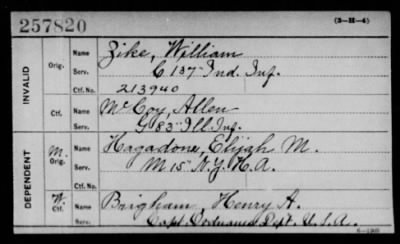 257820
(3-H-4)
INVALID
Orig.
Name Zike, William
Serv. C. 137" Ind. Inf.
Ctf. No. 213940
Ctf.
Name McCoy, Allen
Serv. G 83" Ill. Inf.
DEPENDENT
M. Orig.
Name Hagadone, Elijah M.
Serv. M 15" N.Y. H.A.
Ctf. No.
W. Ctf.
Name Brigham, Henry A.
Serv. Capt. Ordnance Dept. U.S.A.